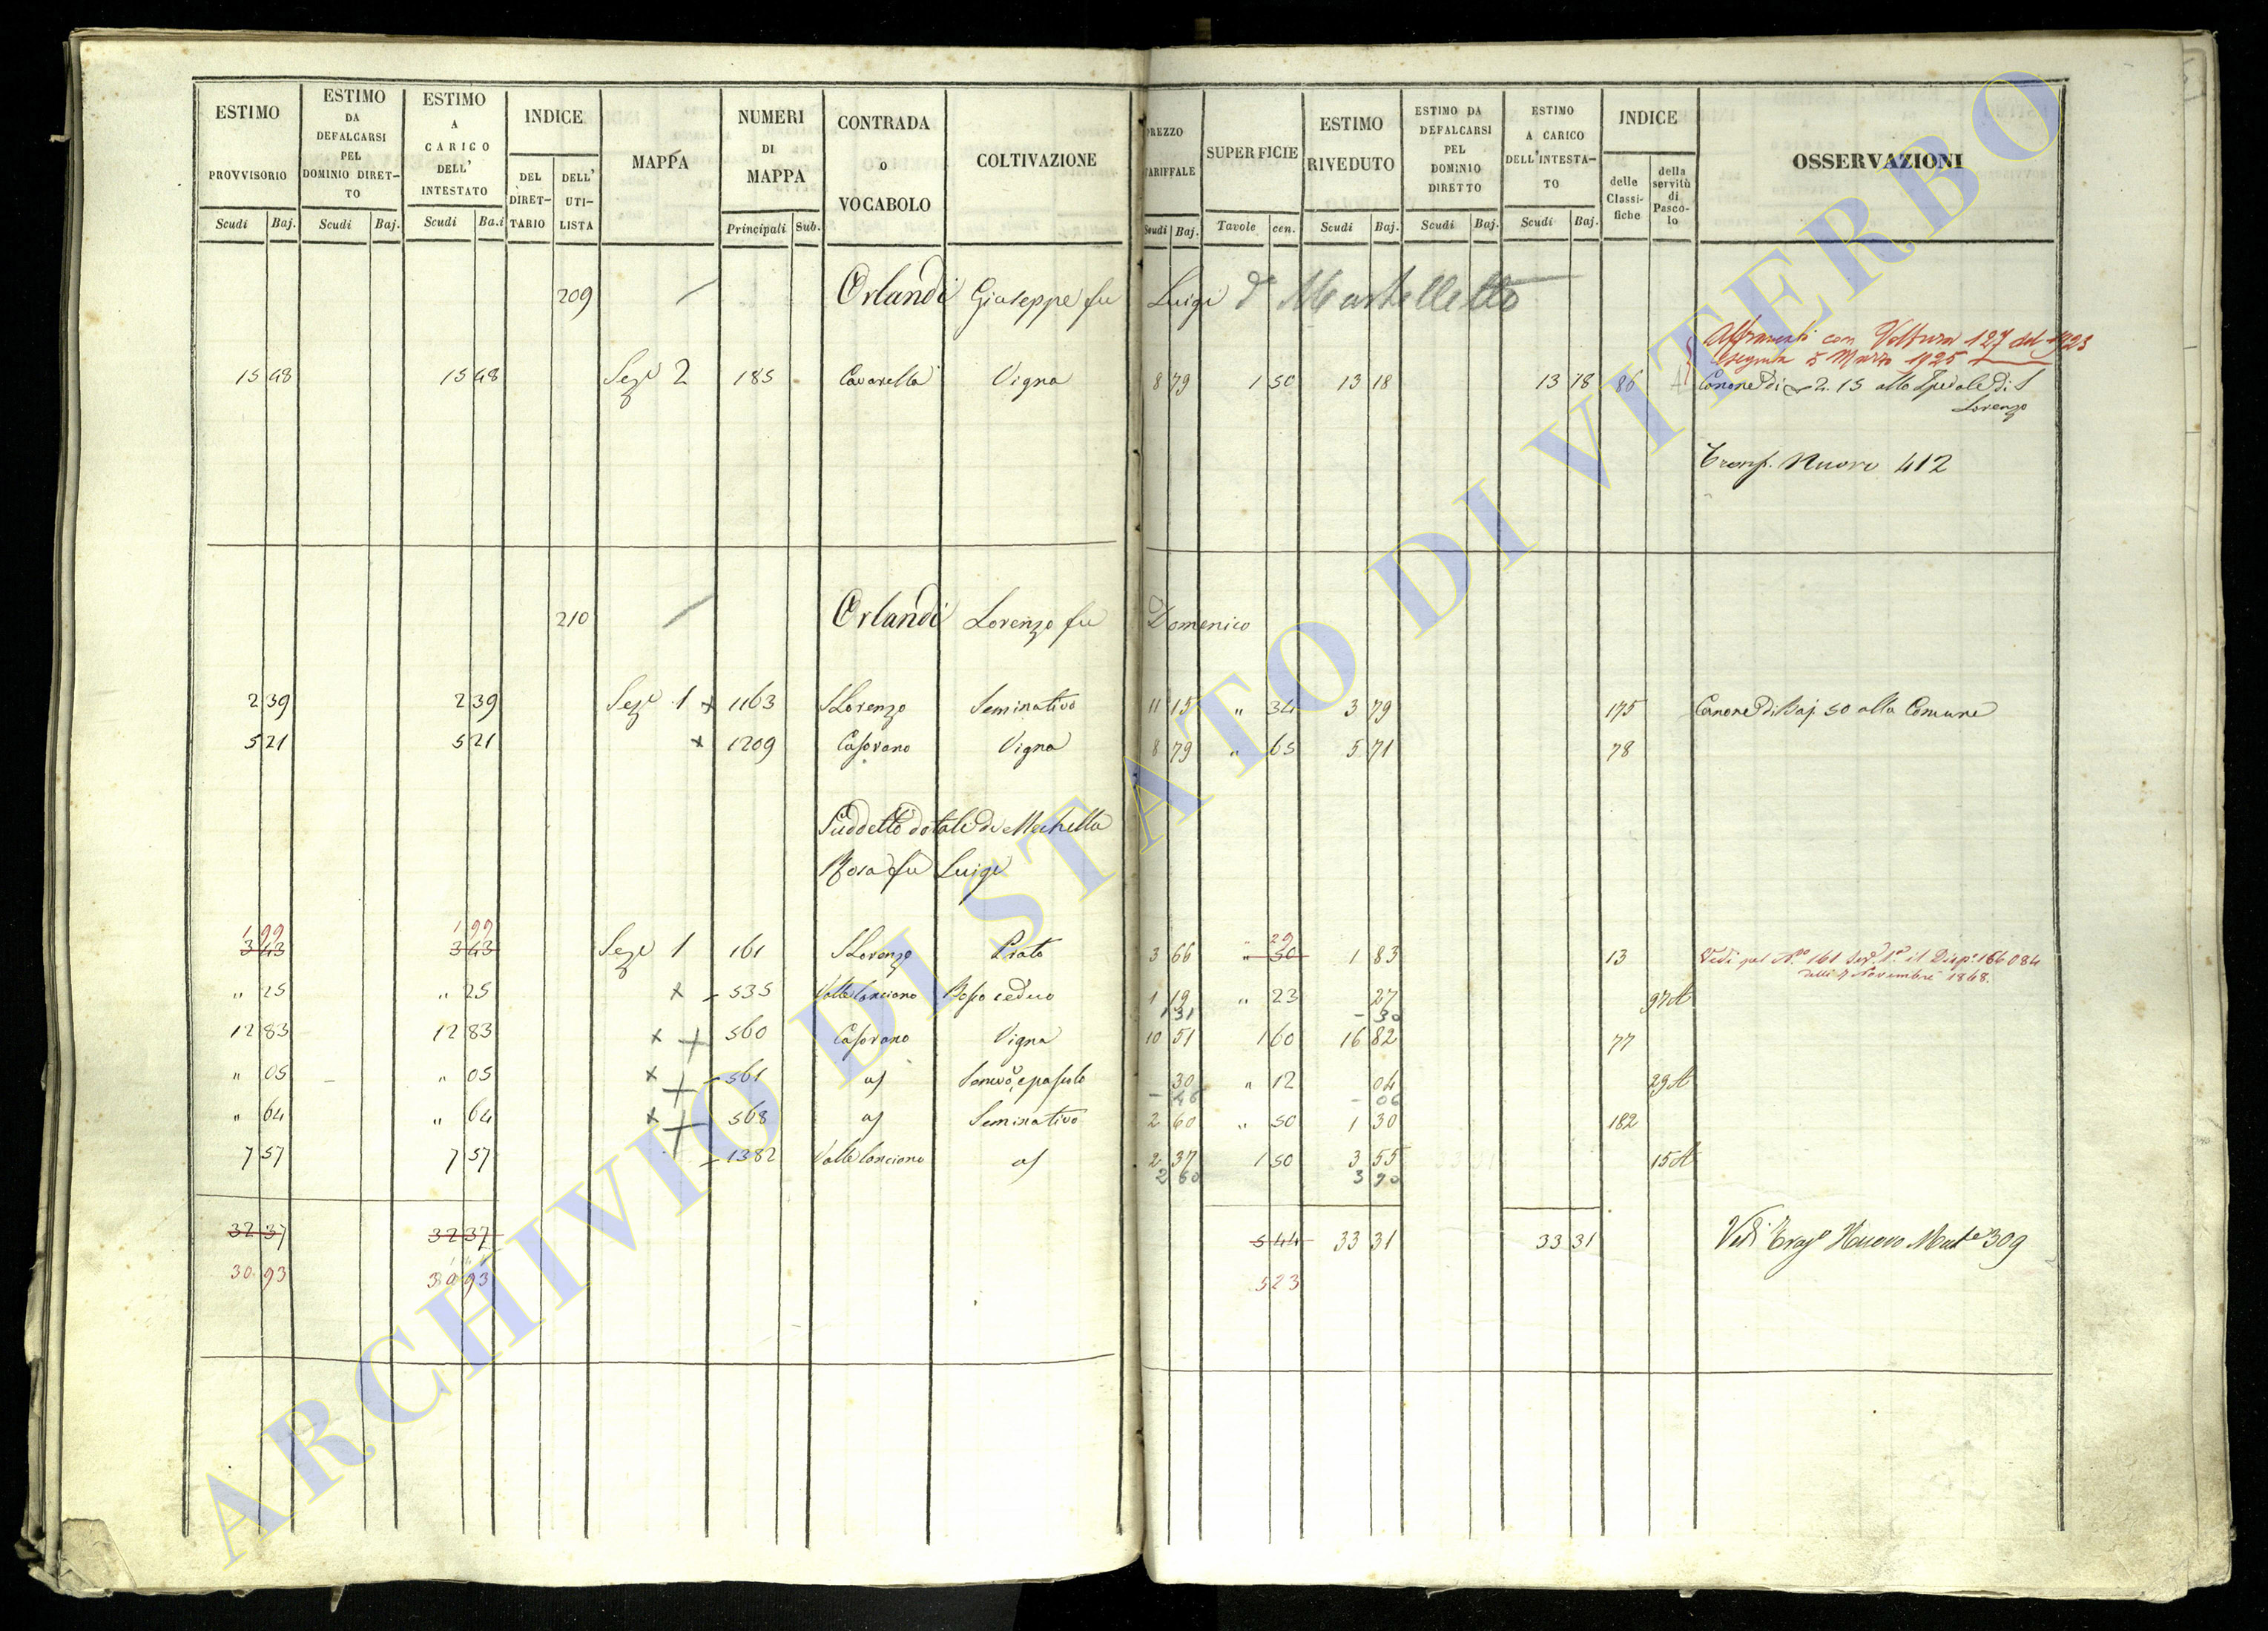 ESTIMO PROVVISORIO Scudi Baj.
ESTIMO DA DEFALCARSI PEL DOMINIO DIRETTO Scudi Baj.
ESTIMO A CARICO DELL' INTESTATO Scudi Ba.i
INDICE DEL DIRETTARIO DELL' UTILISTA
MAPPA
NUMERI DI MAPPA Principali Sub.
CONTRADA o VOCABOLO
COLTIVAZIONE
PREZZO TARIFFALE Scudi Baj.
SUPERFICIE Tavole cen.
ESTIMO RIVEDUTO Scudi Baj.
ESTIMO DA DEFALCARSI PEL DOMINIO DIRETTO Scudi Baj.
ESTIMO A CARICO DELL'INTESTATO Scudi Baj.
INDICE delle Classifiche della servitù di Pascolo
OSSERVAZIONI
209 Orlandi Giuseppe fu Luigi d. Martelletto
Affrancato con Voltura 127 del 1923
eseguita 5 Marzo 1925
15 48 15 48 Seze 2 185 Cavarella Vigna 8 79 1 50 13 18 13 18 86 Canone di 2. 15 allo Spedale di S
Lorenzo
Trasp. Nuovo 412
210 Orlandi Lorenzo fu Domenico
2 39 2 39 Seze 1 x 1163 S Lorenzo Seminativo 11 15 " 34 3 79 175 Canone di Baj. 50 alla Comune
5 21 5 21 x 1209 Casorano Vigna 8 79 " 65 5 71 78
Suddetto dotali di Mechella
Rosa fu Luigi
1 99 1 99 " 29
3 43 3 43 Seze 1 161 S Lorenzo Prato 3 66 " 30 1 83 13 Vedi pel N.o 161 Sez. 1a il Disp. 166084
delli 7 Novembre 1848.
" 25 " 25 x 535 Valle lanciano Bosco ceduo 1 19 " 23 27 97 A
1 31 - 30
12 83 12 83 x + 560 Casorano Vigna 10 51 1 60 16 82 77
" 05 " 05 x + 561 a/ Sodivo e pascolo 30 " 12 04 29 A
- 06
" 64 " 64 x + 568 a/ Seminativo 2 60 " 50 1 30 182
7 57 7 57 1382 Valle lanciano a/ 2 37 1 50 3 55 15 A
2 60 3 90
32 37 32 37 5 44 33 31 33 31 Vedi Trasp Nuovo Mate 309
30 93 30 93 5 23
ARCHIVIO DI STATO DI VITERBO